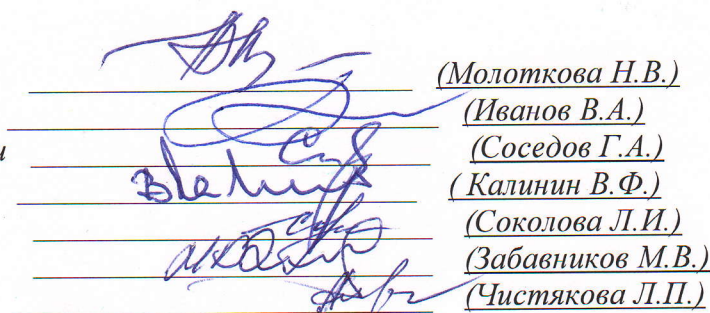 (Молоткова Н.В.)
(Иванов В.А.)
и (Соседов Г.А.)
( Калинин В.Ф.)
(Соколова Л.И.)
(Забавников М.В.)
(Чистякова Л.П.)